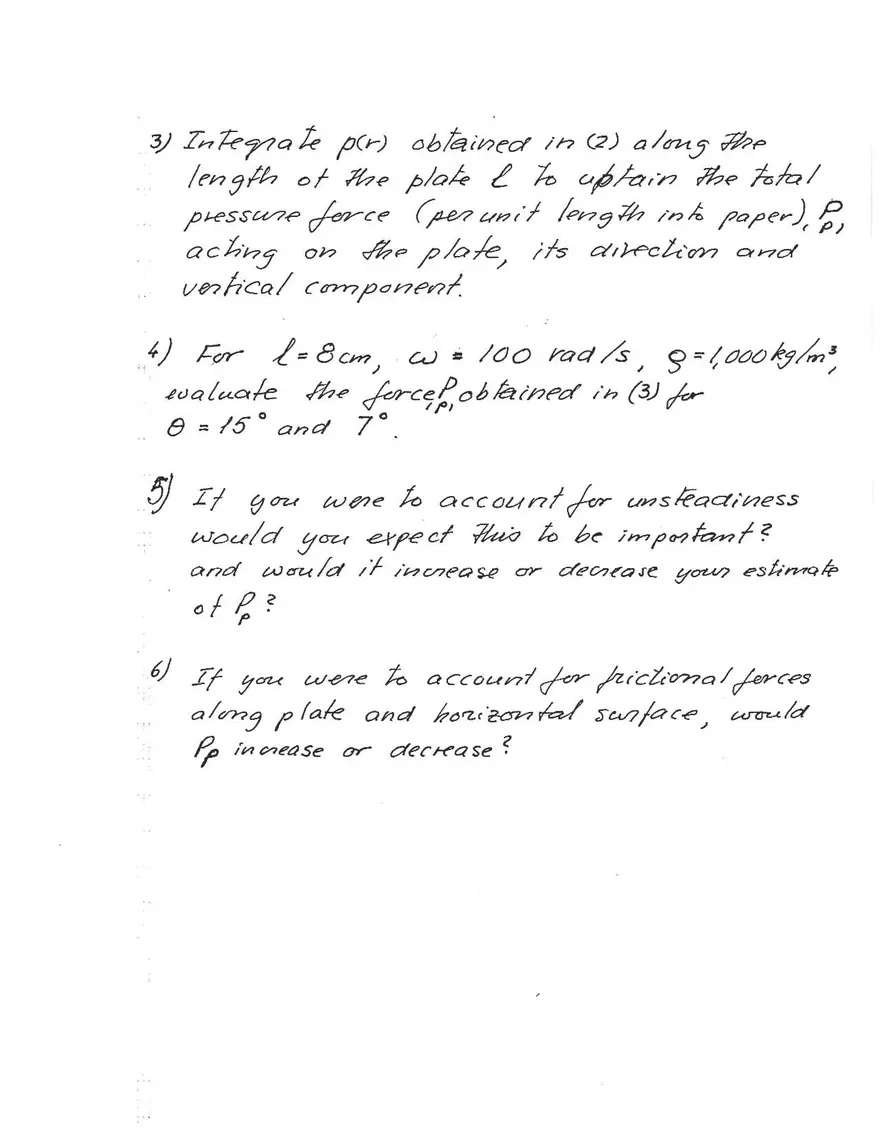 3) Integrate p(r) obtained in (2) along the
length of the plate l to obtain the total
pressure force (per unit length into paper), Pp,
acting on the plate, its direction and
vertical component.
4) For l = 8 cm, ω = 100 rad/s, ρ = 1,000 kg/m³,
evaluate the force, Pp, obtained in (3) for
θ = 15° and 7°.
5) If you were to account for unsteadiness
would you expect this to be important?
and would it increase or decrease your estimate
of Pp?
6) If you were to account for frictional forces
along plate and horizontal surface, would
Pp increase or decrease?